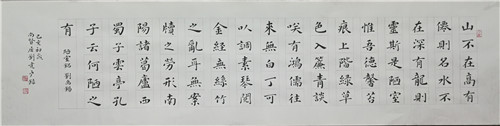 山不在高有
僊則名水不
在深有龍則
靈斯是陋室
惟吾德馨苔
痕上階綠草
色入簾青談
咲有鴻儒往
來無白丁可
以調素琴閱
金經無絲竹
之亂耳無案
牘之勞形南
陽諸葛廬西
蜀子雲亭孔
子云何陋之
有
陋室銘 劉禹錫